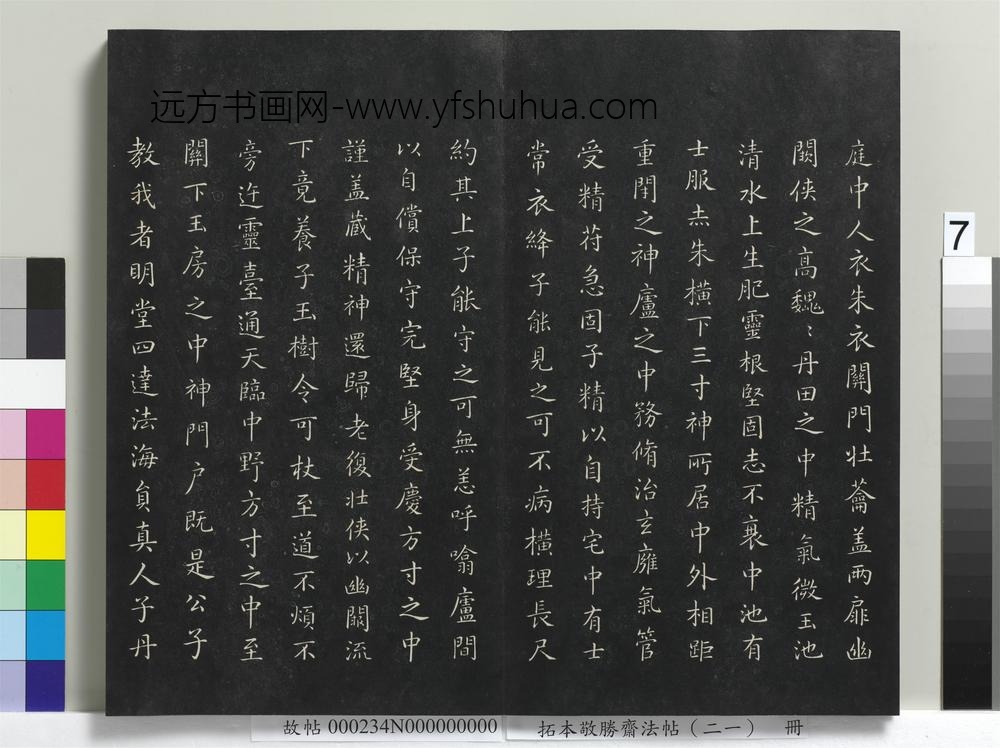 远方书画网-www.yfshuhua.com
庭中人衣朱衣關門壯蘥盖兩扉幽
闕侠之高魏〻丹田之中精氣微玉池
清水上生肥靈根堅固志不衰中池有
士服赤朱横下三寸神所居中外相距
重閇之神廬之中務脩治玄廱氣管
受精苻急固子精以自持宅中有士
常衣絳子能見之可不病横理長尺
約其上子能守之可無恙呼噏廬間
以自償保守完堅身受慶方寸之中
謹盖藏精神還歸老復壯侠以幽闕流
下竟養子玉樹令可杖至道不煩不
旁迕靈臺通天臨中野方寸之中至
關下玉房之中神門户既是公子
教我者明堂四達法海負真人子丹
7
故帖 000234N000000000
拓本敬勝齋法帖（二一） 冊